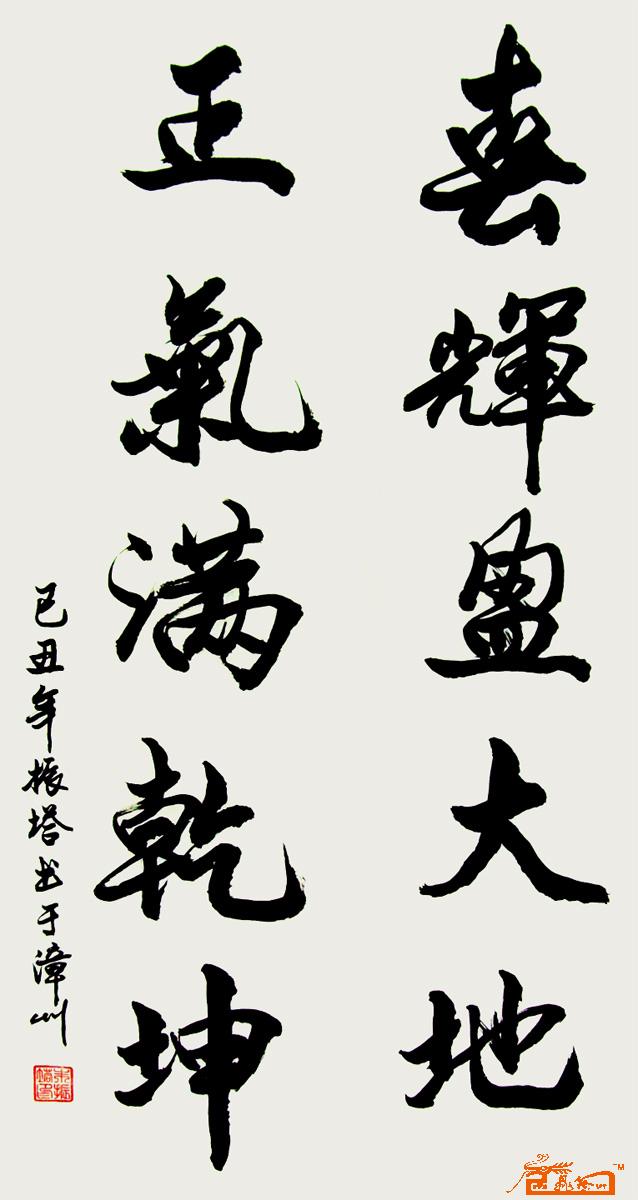 春輝盈大地
正氣满乾坤
己丑年振塔书于漳州
TM